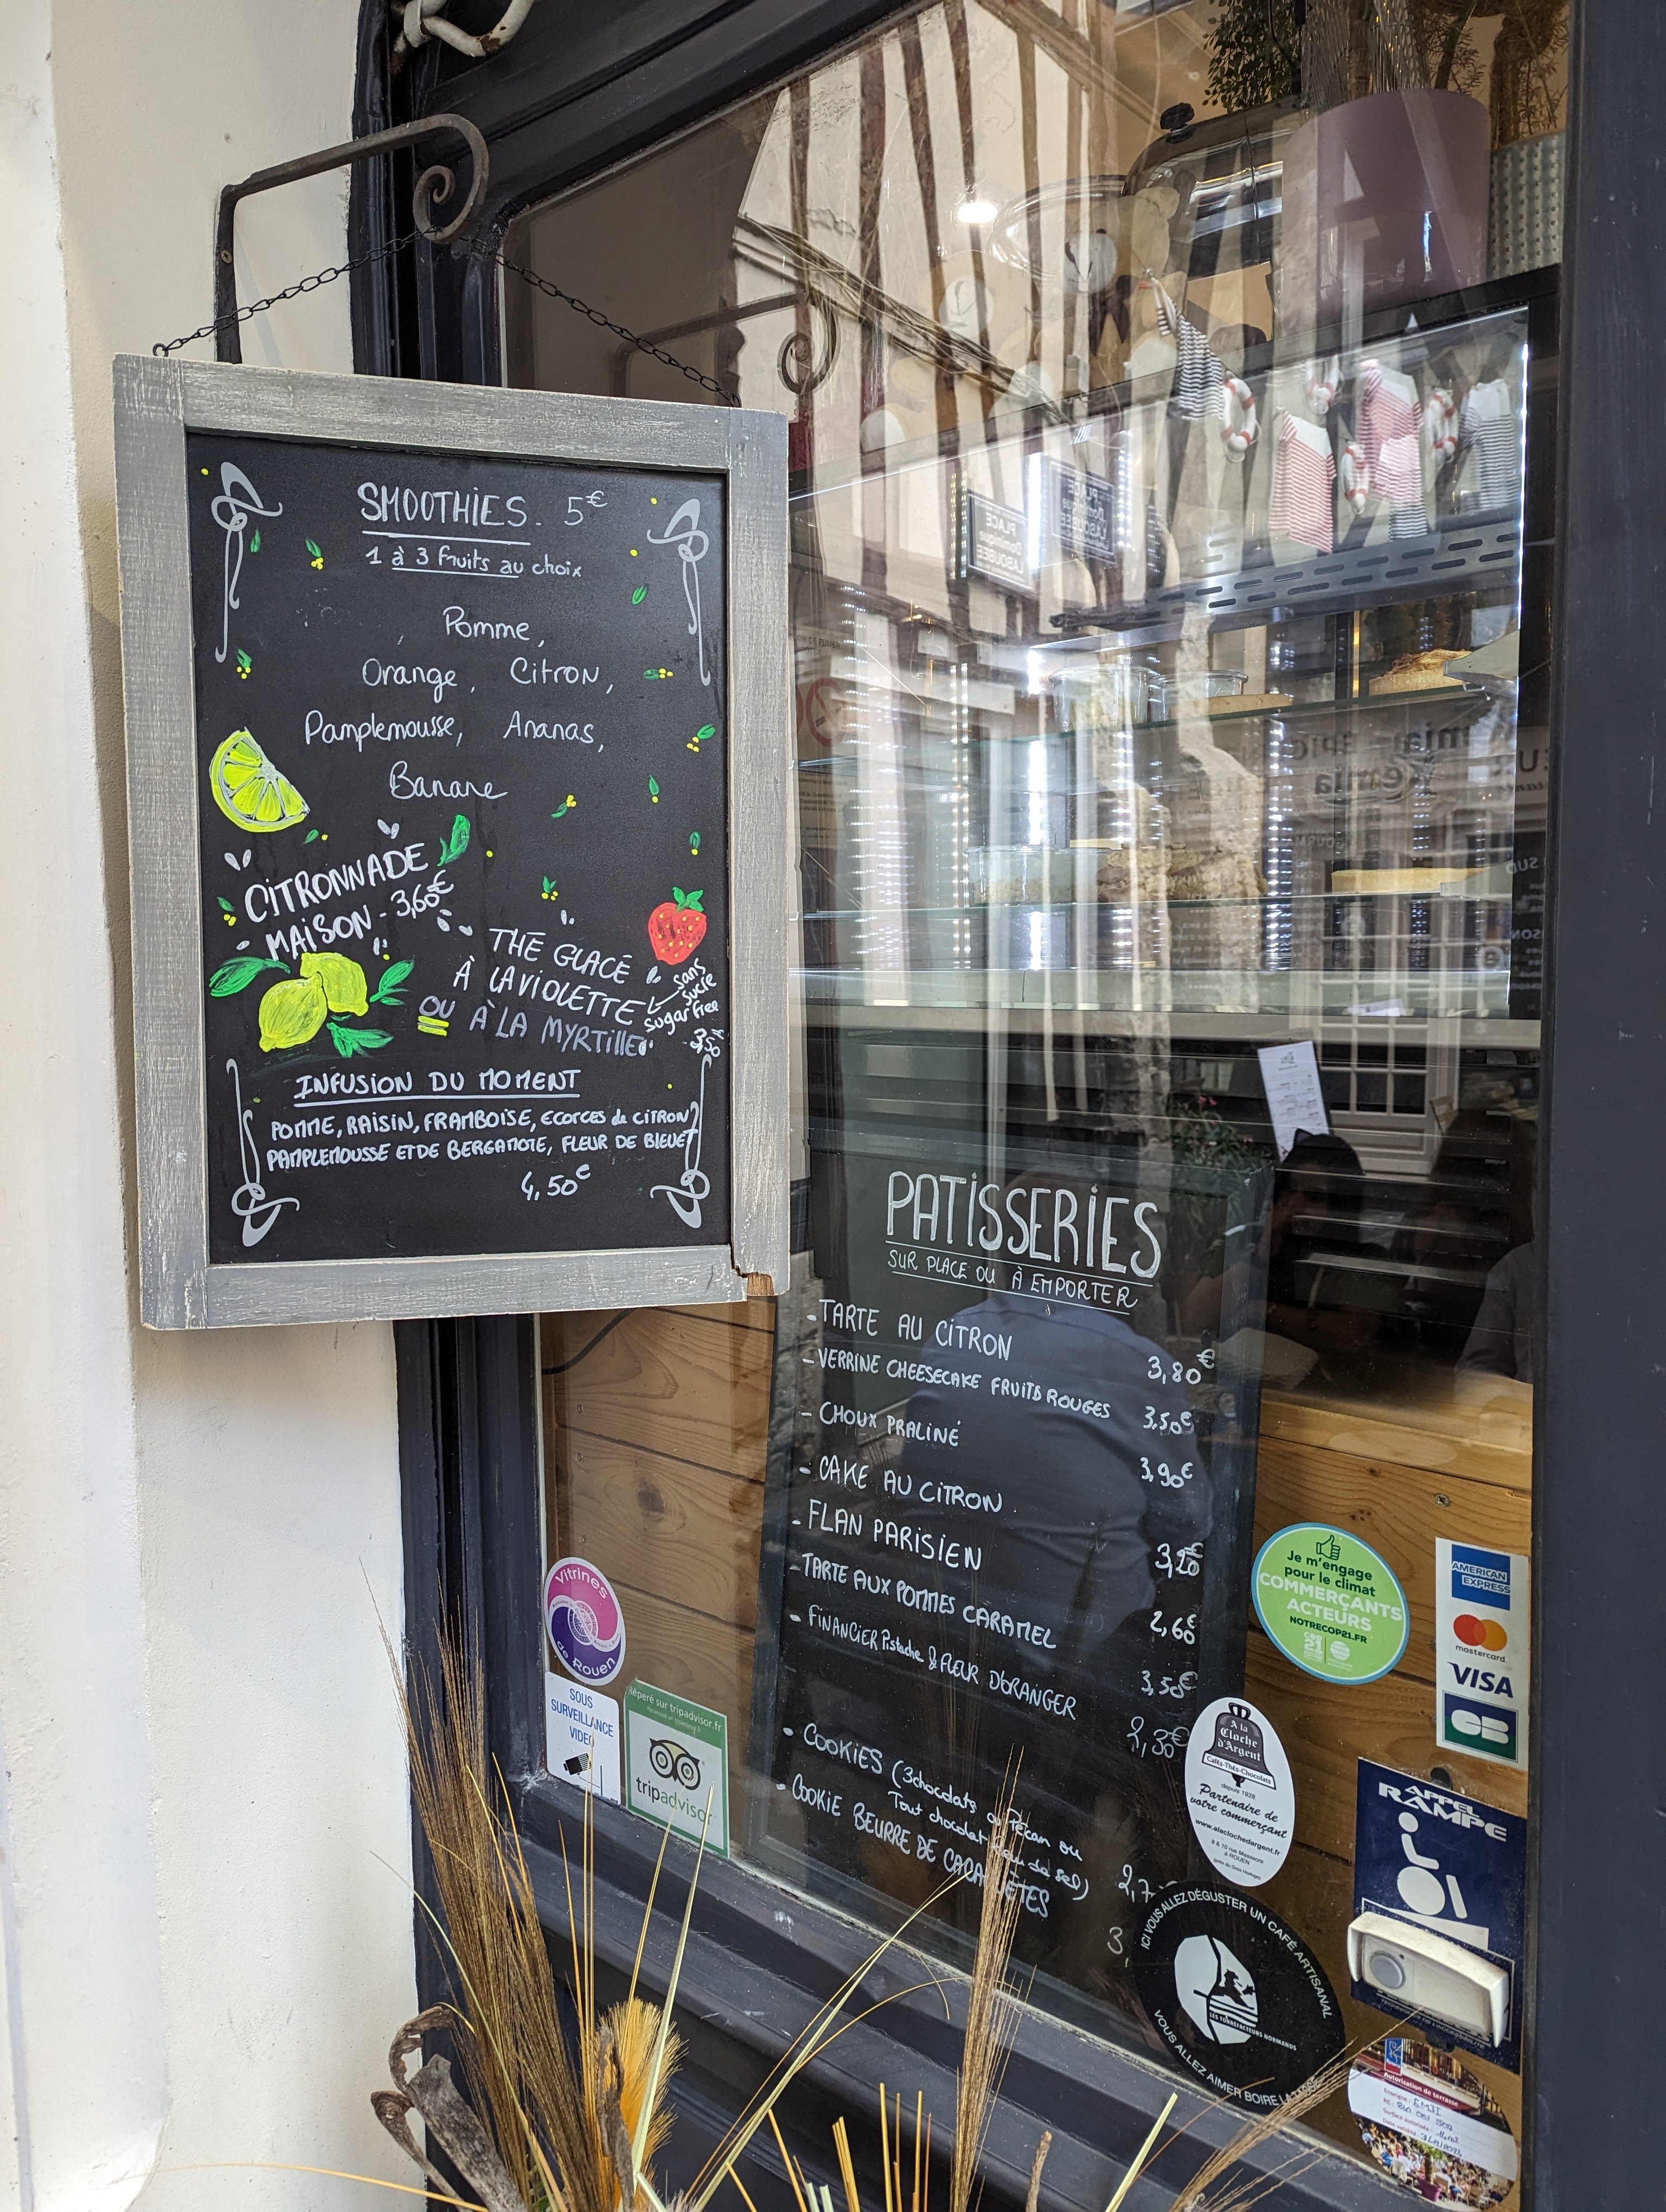 SMOOTHIES. 5€
1 à 3 fruits au choix
Pomme,
Orange, Citron,
Pamplemousse, Ananas,
Banane
CITRONNADE
MAISON - 3,60€
THÉ GLACÉ
À LA VIOLETTE
OU À LA MYRTILLE
sans
sucre
sugar free
- 3,50€
INFUSION DU MOMENT
POMME, RAISIN, FRAMBOISE, ECORCES de CITRON
PAMPLEMOUSSE ET DE BERGAMOTE, FLEUR DE BLEUET
4,50€
PLACE
Dominique
LABOURÉE
PATISSERIES
SUR PLACE OU À EMPORTER
- TARTE AU CITRON 3,80€
- VERRINE CHEESECAKE FRUITS ROUGES 3,50€
- CHOUX PRALINÉ 3,90€
- CAKE AU CITRON
- FLAN PARISIEN 3,20€
- TARTE AUX POMMES CARAMEL 2,60€
- FINANCIER Pistache & FLEUR D'ORANGER 3,50€
2,30€
- COOKIES (3chocolats ou Pécan ou
Tout chocolat fleur de sel) 2,7
- COOKIE BEURRE DE CACAHUÈTES 3,
Vitrines
de Rouen
SOUS
SURVEILLANCE
VIDEO
Repéré sur tripadvisor.fr
tripadvisor
Je m'engage
pour le climat
COMMERÇANTS
ACTEURS
NOTRECOP21.FR
COP
21
AMERICAN
EXPRESS
mastercard
VISA
CB
A la
Cloche
d'Argent
Cafés-Thés-Chocolats
depuis 1928
Partenaire de
votre commerçant
www.alaclochedargent.fr
8 & 10 rue Massacre
à ROUEN
APPEL
RAMPE
ICI VOUS ALLEZ DÉGUSTER UN CAFÉ ARTISANAL
LES TORRÉFACTEURS NORMANDS
VOUS ALLEZ AIMER BOIRE
Autorisation de terrasse
Enseigne : EMJI